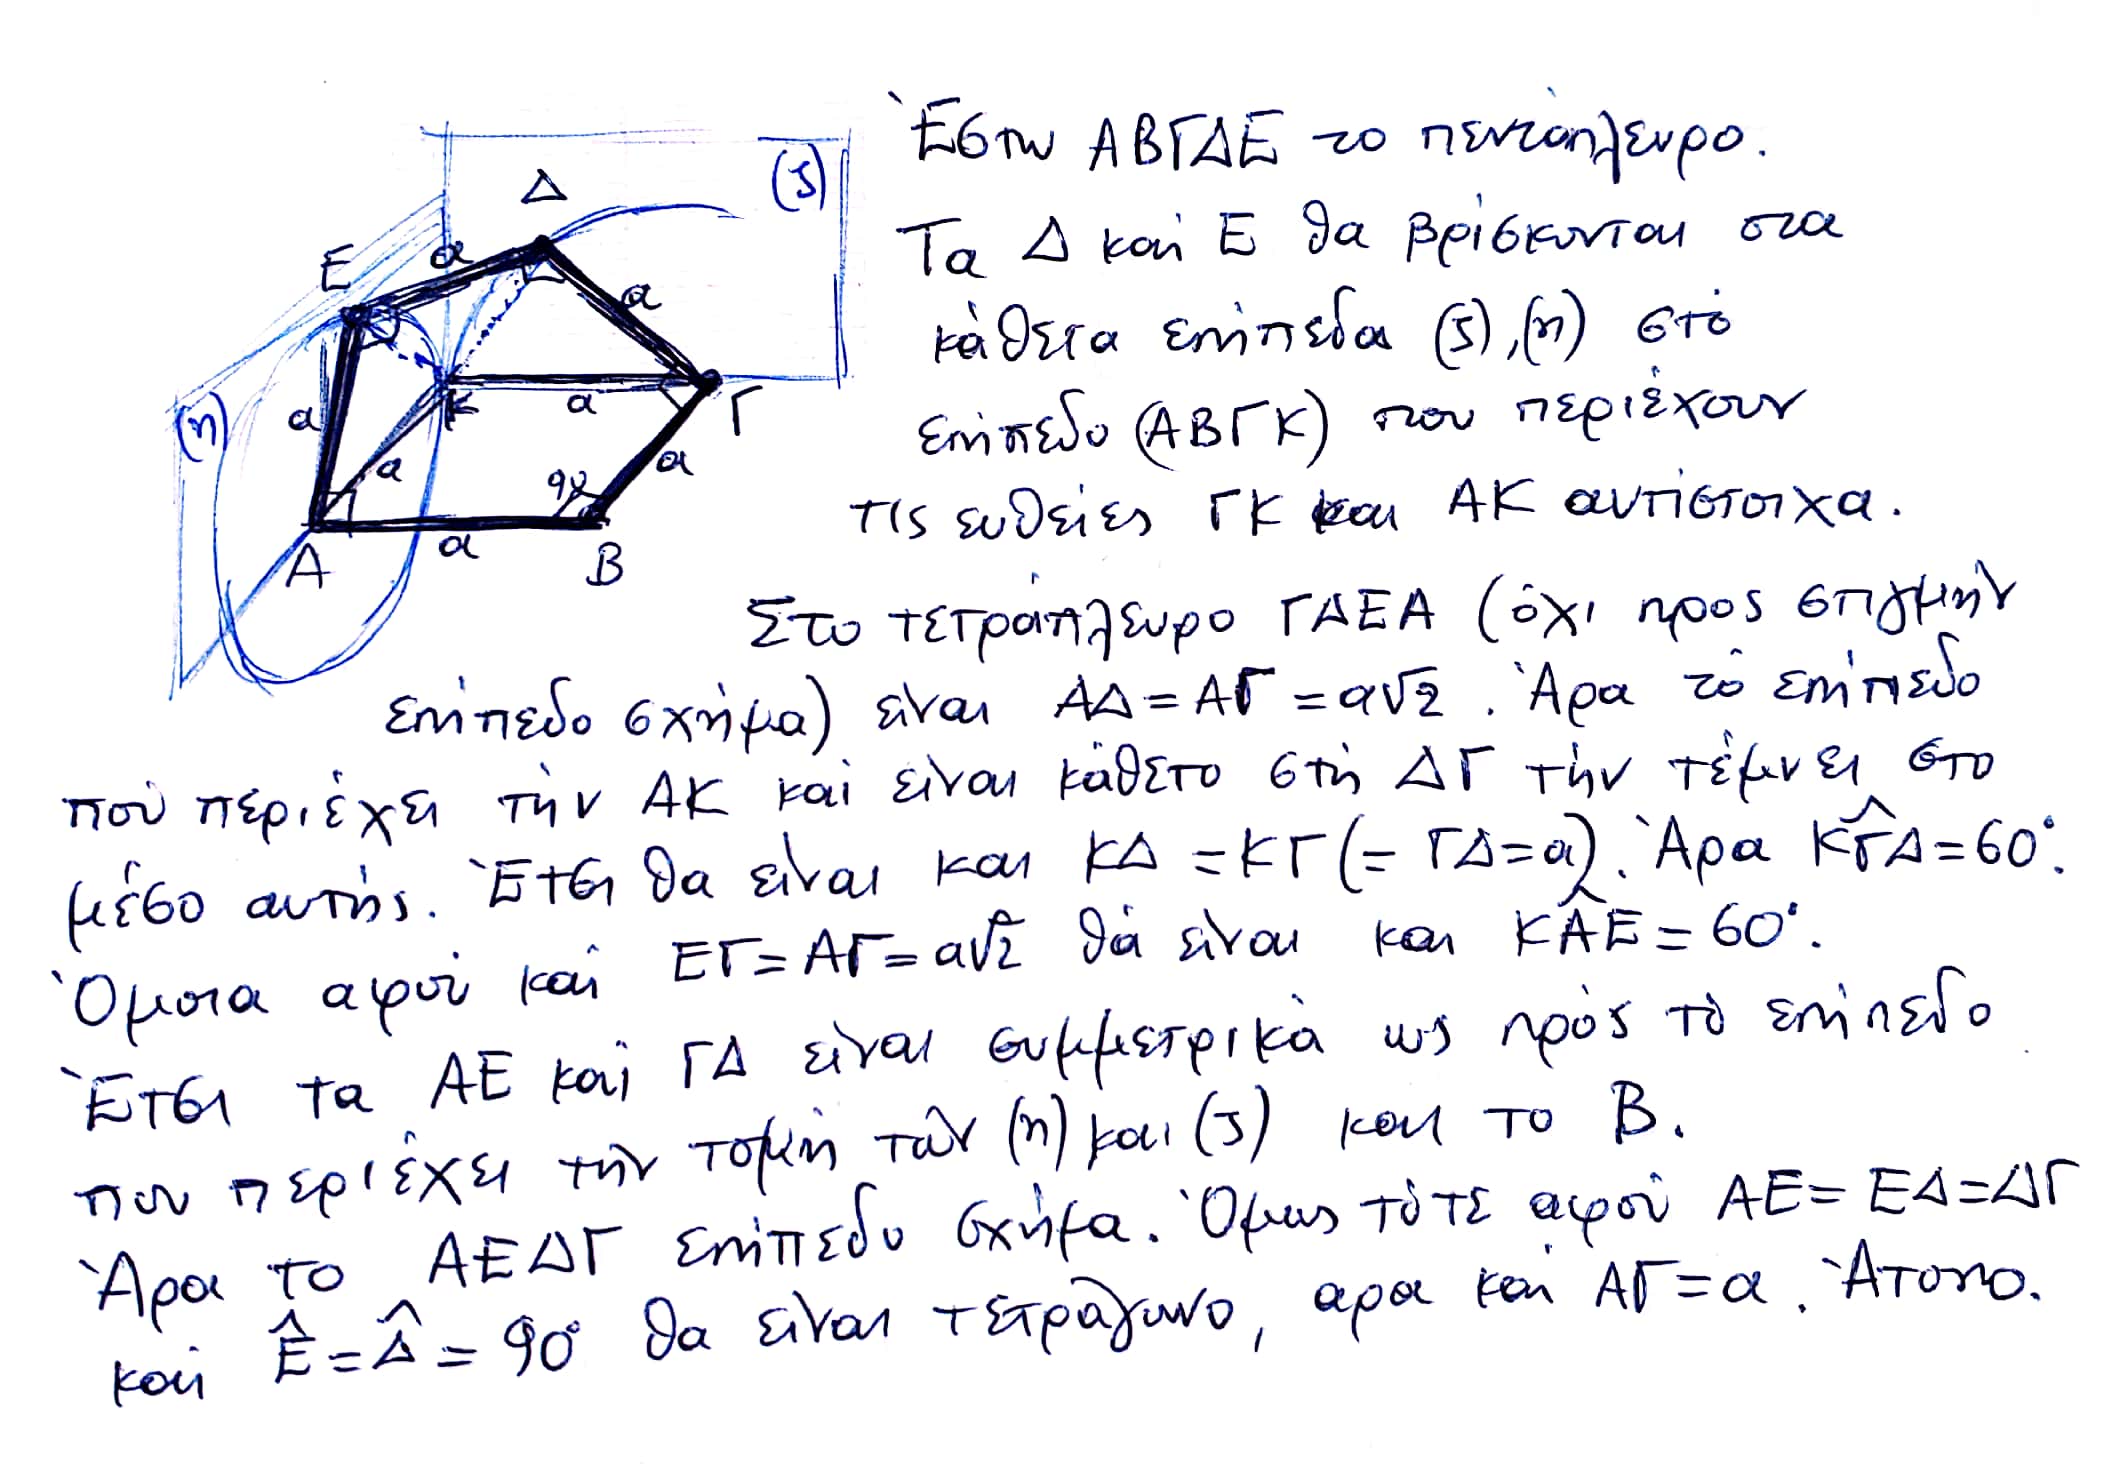 Ἔστω ΑΒΓΔΕ το πεντάπλευρο.
Τα Δ καί Ε θα βρίσκονται στα
κάθετα επίπεδα (ζ),(η) στό
επίπεδο (ΑΒΓΚ) που περιέχουν
τις ευθείες ΓΚ και ΑΚ αντίστοιχα.
Στο τετράπλευρο ΓΔΕΑ (όχι προς στιγμήν
επίπεδο σχήμα) είναι ΑΔ=ΑΓ=α√2. Ἄρα τό επίπεδο
πού περιέχει τήν ΑΚ καί είναι κάθετο στή ΔΓ τήν τέμνει στο
μέσο αυτής. Ἔτσι θα είναι και ΚΔ=ΚΓ(=ΓΔ=α). Ἄρα ΚΓ̂Δ=60°.
Ὅμοια αφού καί ΕΓ=ΑΓ=α√2 θά είναι και ΚÂΕ=60°.
Ἔτσι τα ΑΕ καί ΓΔ είναι συμμετρικά ως πρός τό επίπεδο
που περιέχει τήν τομή τῶν (η) και (ζ) και το Β.
Ἄρα το ΑΕΔΓ επίπεδο σχήμα. Ὅμως τότε αφού ΑΕ=ΕΔ=ΔΓ
καί Ê=Δ̂=90° θα είναι τετράγωνο, αρα καί ΑΓ=α. Ἄτοπο.
(ζ)
Δ
Ε
α
α
α
Κ
α
Γ
(η)
α
α
90
Α
α
Β